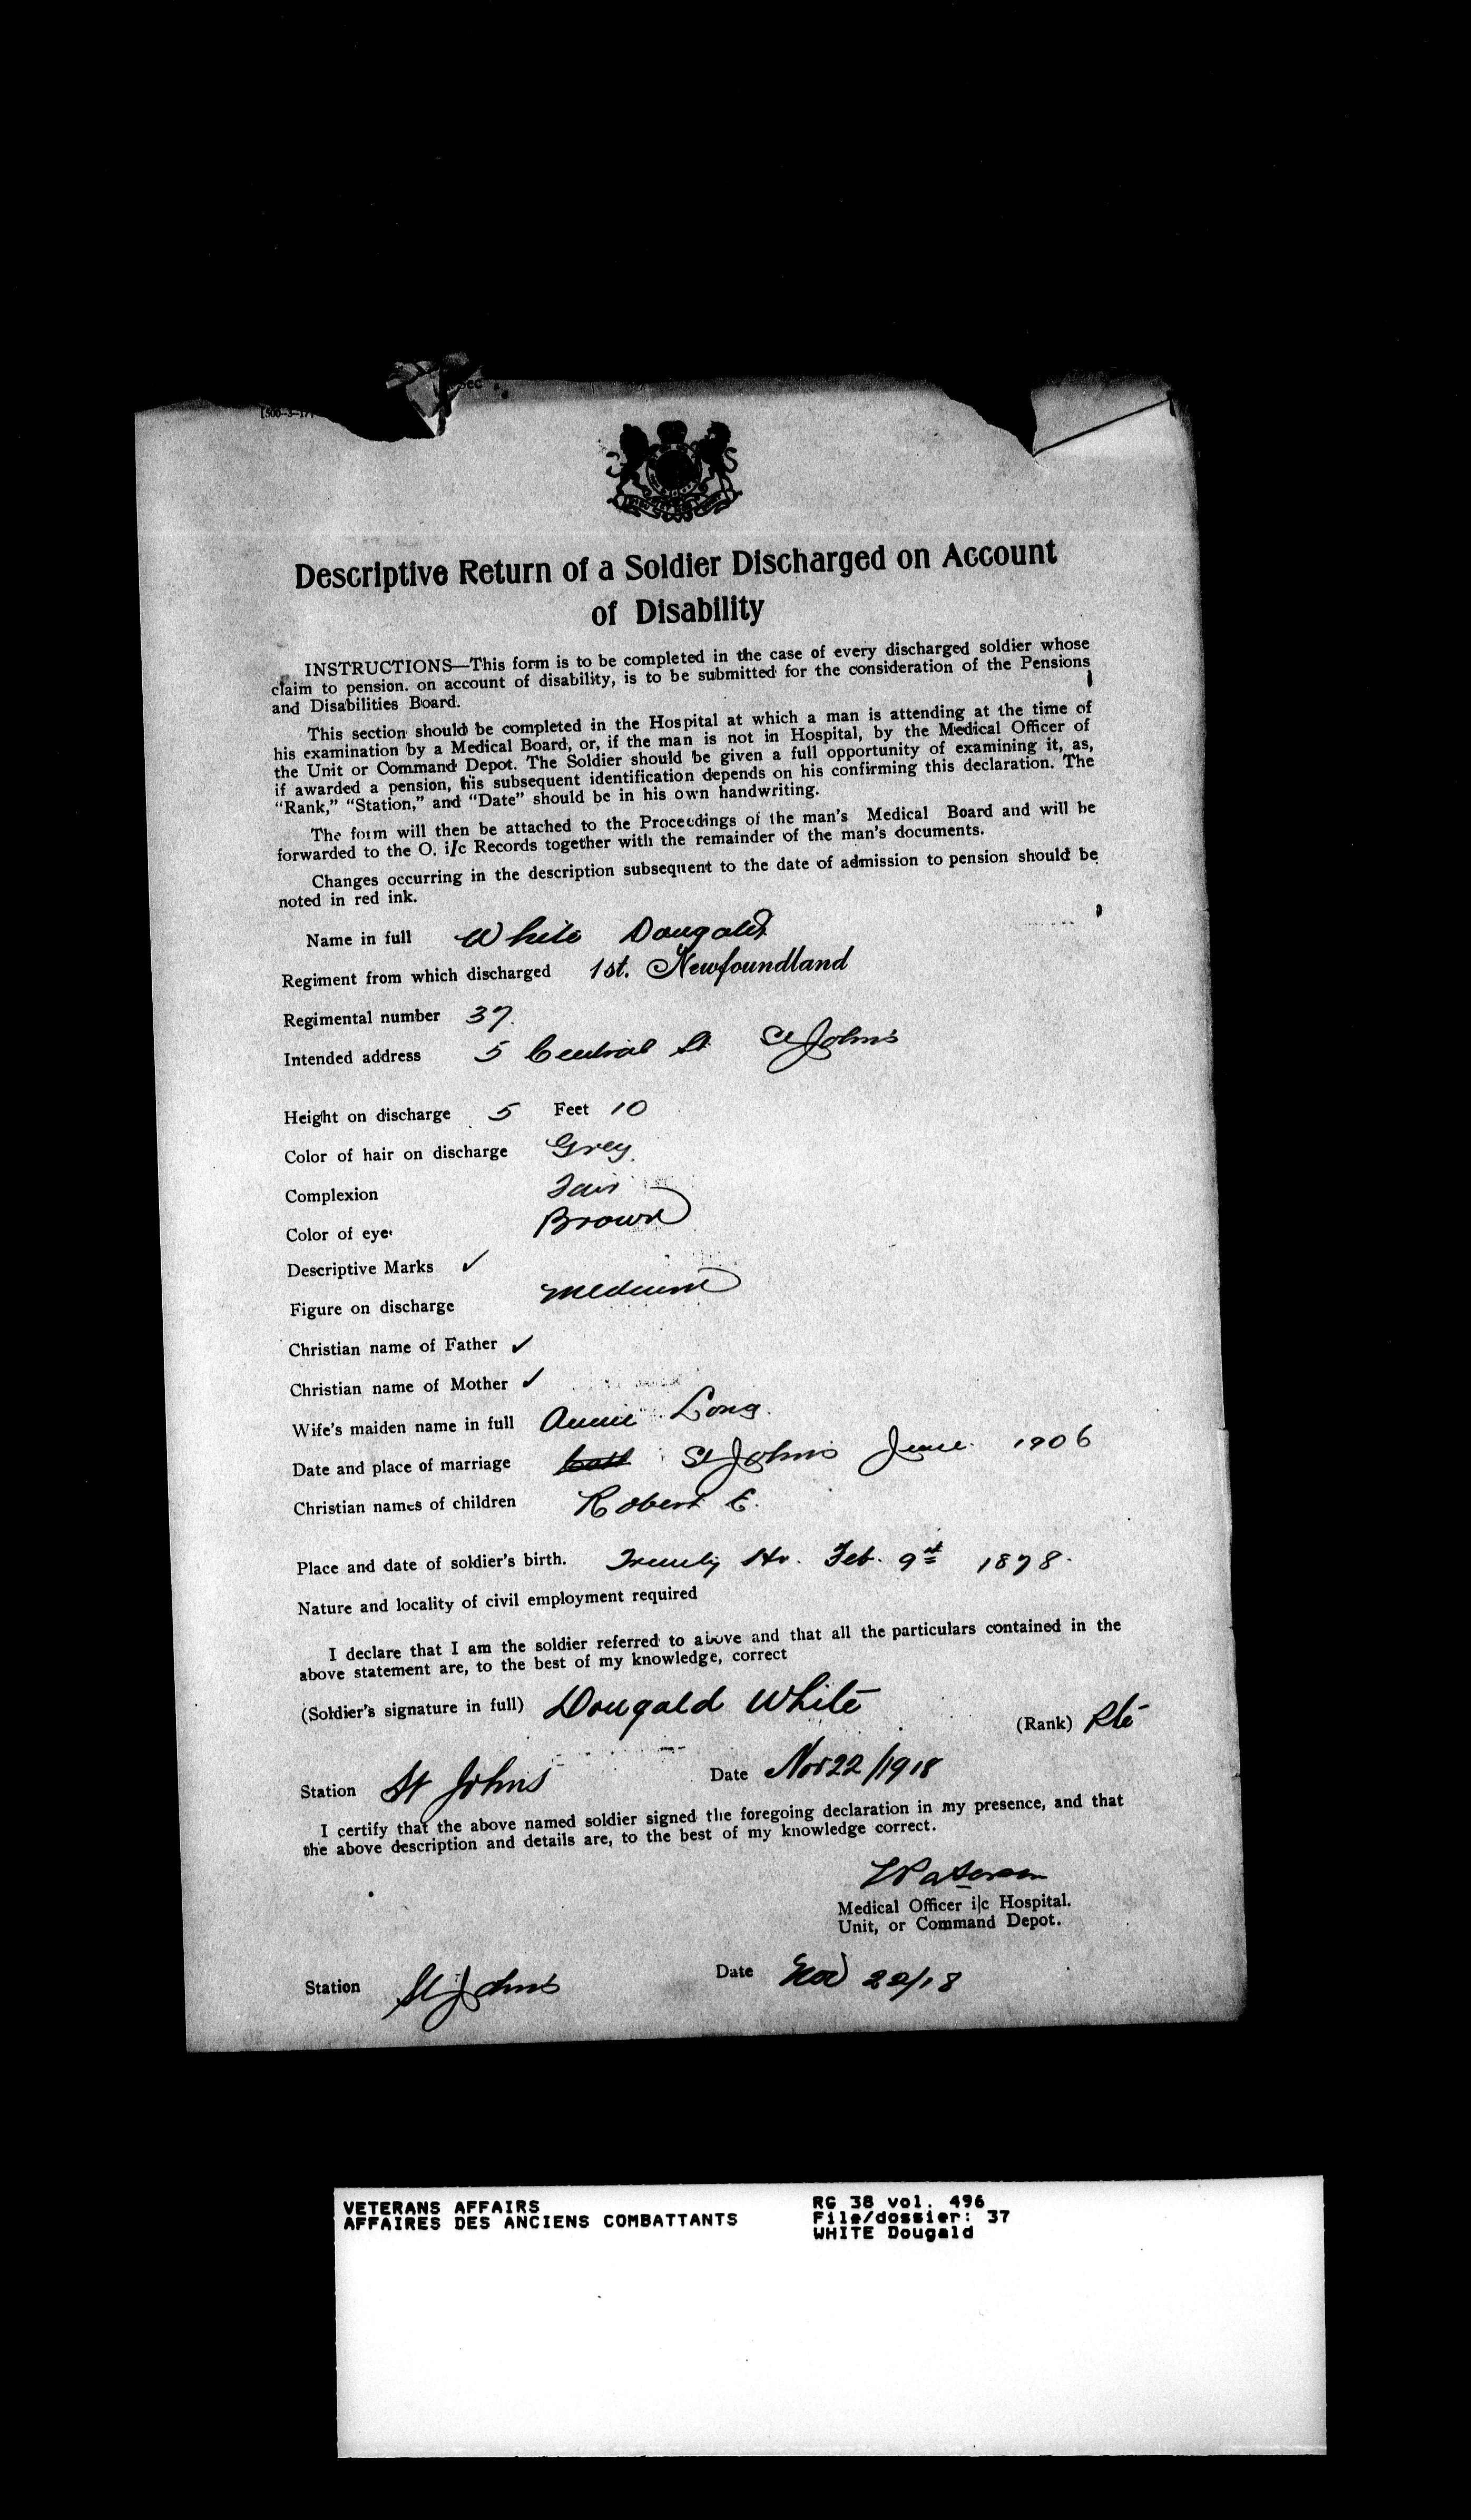 Descriptive Return of a Soldier Discharged on Account
of Disability
INSTRUCTIONS—This form is to be completed in the case of every discharged soldier whose
claim to pension. on account of disability, is to be submitted for the consideration of the Pensions
and Disabilities Board.
This section should be completed in the Hospital at which a man is attending at the time of
his examination by a Medical Board, or, if the man is not in Hospital, by the Medical Officer of
the Unit or Command Depot. The Soldier should be given a full opportunity of examining it, as,
if awarded a pension, his subsequent identification depends on his confirming this declaration. The
“Rank,” “Station,” and “Date” should be in his own handwriting.
The form will then be attached to the Proceedings of the man's Medical Board and will be
forwarded to the O. i/c Records together with the remainder of the man's documents.
Changes occurring in the description subsequent to the date of admission to pension should be
noted in red ink.
Name in full White Dougald
Regiment from which discharged 1st. Newfoundland
Regimental number 37.
Intended address 5 Central St St Johns
Height on discharge 5 Feet 10
Color of hair on discharge Grey.
Complexion Fair
Color of eyes Brown
Descriptive Marks ✓
Figure on discharge Medium
Christian name of Father ✓
Christian name of Mother ✓
Wife's maiden name in full Annie Long.
Date and place of marriage St Johns June 1906
Christian names of children Robert E.
Place and date of soldier's birth. Trinity Hr. Feb. 9th 1878.
Nature and locality of civil employment required
I declare that I am the soldier referred to above and that all the particulars contained in the
above statement are, to the best of my knowledge, correct
(Soldier's signature in full) Dougald White
(Rank) Pte
Station St Johns Date Nov 22/1918
I certify that the above named soldier signed the foregoing declaration in my presence, and that
the above description and details are, to the best of my knowledge correct.
Paterson
Medical Officer i|c Hospital.
Unit, or Command Depot.
Station St Johns Date Nov 22/18
VETERANS AFFAIRS RG 38 vol. 496
AFFAIRES DES ANCIENS COMBATTANTS File/dossier: 37
WHITE Dougald